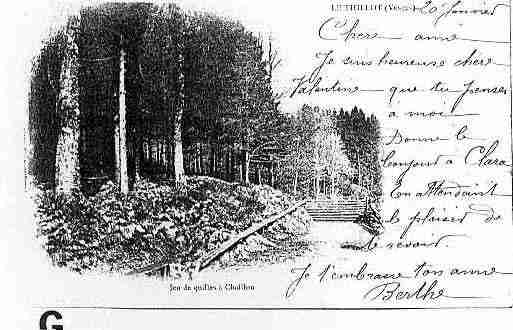 LE THILLOT (Vosges) 20 Janvier
Chere amie
Je suis heureuse chère
Valentine que tu penses
à moi
Donne le
bonjour a Clara
En attendant
le plaisir de
te revoir.
Je t'embrasse ton amie
Berthe
Jeu de quilles à Chaillon
G